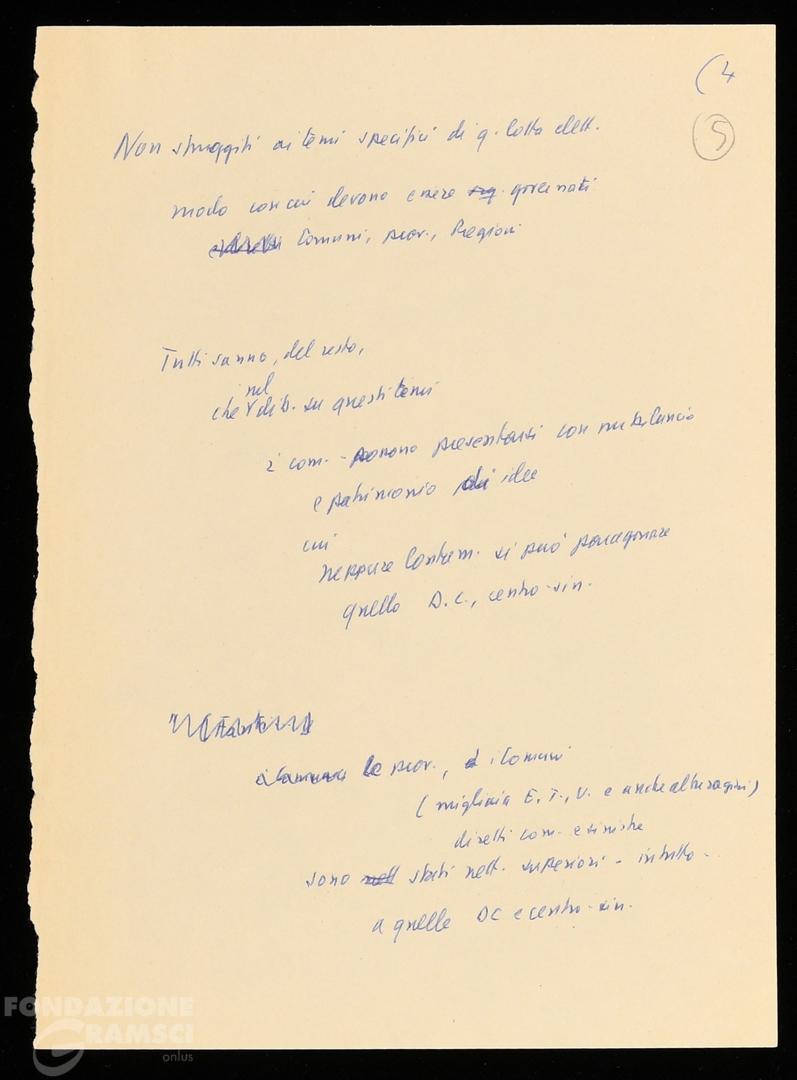 (4
5
Non sfuggiti ai temi specifici di q. lotta elett.
modo con cui devono essere governati
Comuni, prov., Regioni
Tutti sanno, del resto,
nel
che dib. su questi temi
i com. possono presentarsi con un bilancio
e patrimonio di idee
cui
neppure lontam. si può paragonare
quello D.C., centro-sin.
le prov., i Comuni
(migliaia E. T., U. e anche altre ragini)
diretti com. e sinistre
sono stati nett. superiori - in tutto -
a quelle DC e centro-sin.
FONDAZIONE
GRAMSCI
onlus